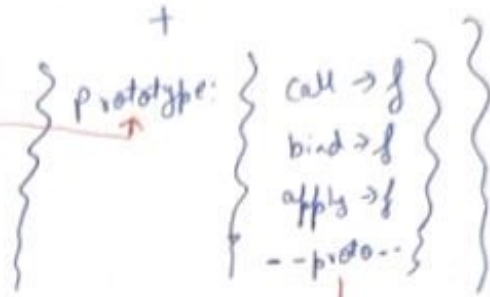 +
{ prototype: { call → f
bind → f
apply → f
--proto-- } }